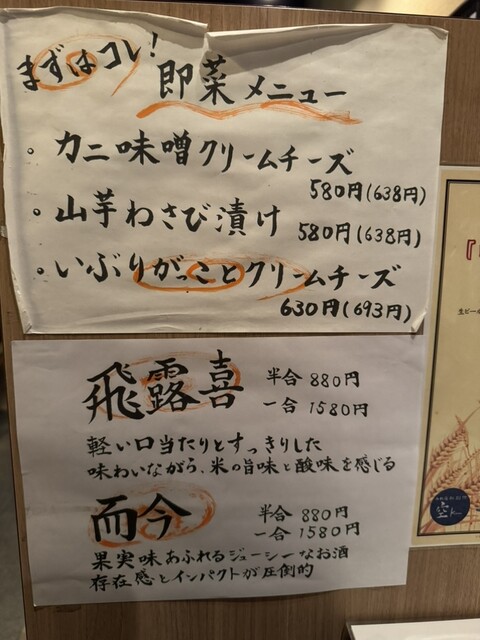 まずはコレ!
即菜メニュー
。カニ味噌クリームチーズ
580円(638円)
。山芋わさび漬け
580円(638円)
。いぶりがっことクリームチーズ
630円(693円)
飛露喜
半合 880円
一合 1580円
軽い口当たりとすっきりした
味わいながら、米の旨味と酸味を感じる
而今
半合 880円
一合 1580円
果実味あふれるジューシーなお酒
存在感とインパクトが圧倒的
生ビール
空